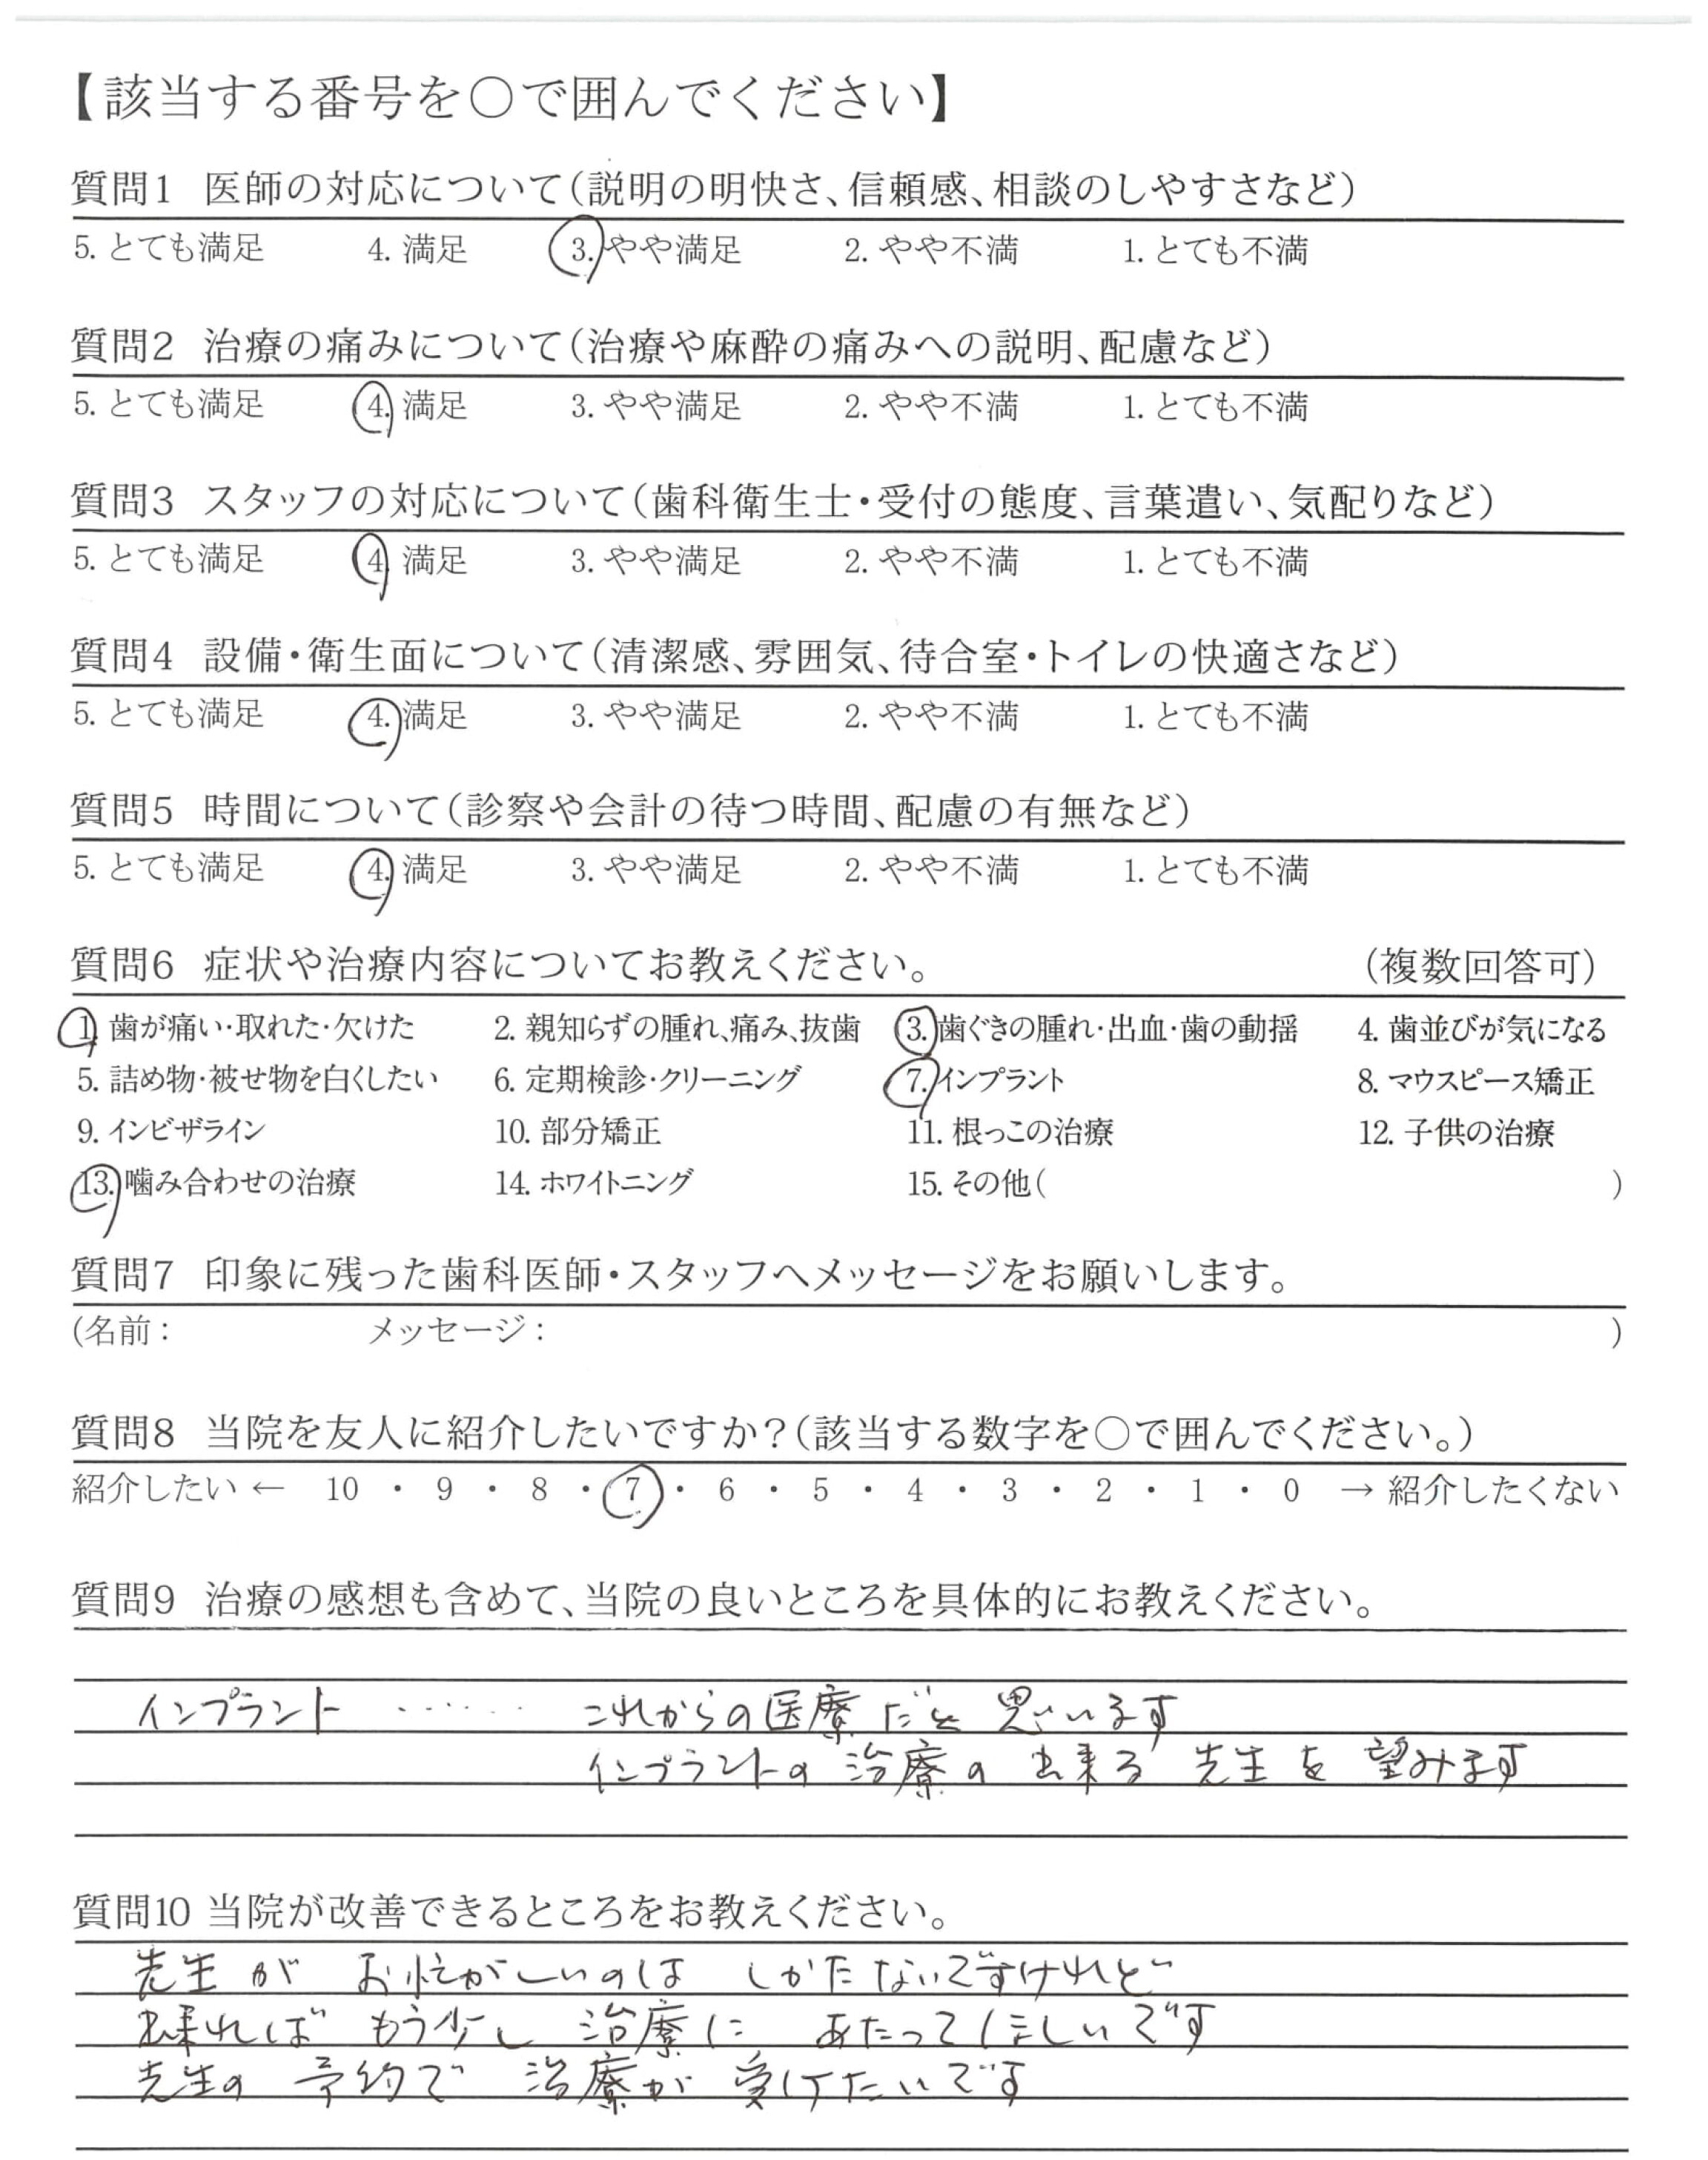 【該当する番号を○で囲んでください】
質問1 医師の対応について(説明の明快さ、信頼感、相談のしやすさなど)
5. とても満足 4. 満足 3. やや満足 2. やや不満 1. とても不満
質問2 治療の痛みについて(治療や麻酔の痛みへの説明、配慮など)
5. とても満足 4. 満足 3. やや満足 2. やや不満 1. とても不満
質問3 スタッフの対応について(歯科衛生士・受付の態度、言葉遣い、気配りなど)
5. とても満足 4. 満足 3. やや満足 2. やや不満 1. とても不満
質問4 設備・衛生面について(清潔感、雰囲気、待合室・トイレの快適さなど)
5. とても満足 4. 満足 3. やや満足 2. やや不満 1. とても不満
質問5 時間について(診察や会計の待つ時間、配慮の有無など)
5. とても満足 4. 満足 3. やや満足 2. やや不満 1. とても不満
質問6 症状や治療内容についてお教えください。 (複数回答可)
1. 歯が痛い・取れた・欠けた 2. 親知らずの腫れ、痛み、抜歯 3. 歯ぐきの腫れ・出血・歯の動揺 4. 歯並びが気になる
5. 詰め物・被せ物を白くしたい 6. 定期検診・クリーニング 7. インプラント 8. マウスピース矯正
9. インビザライン 10. 部分矯正 11. 根っこの治療 12. 子供の治療
13. 噛み合わせの治療 14. ホワイトニング 15. その他( )
質問7 印象に残った歯科医師・スタッフへメッセージをお願いします。
(名前: メッセージ: )
質問8 当院を友人に紹介したいですか?(該当する数字を○で囲んでください。)
紹介したい ← 10 ・ 9 ・ 8 ・ 7 ・ 6 ・ 5 ・ 4 ・ 3 ・ 2 ・ 1 ・ 0 → 紹介したくない
質問9 治療の感想も含めて、当院の良いところを具体的にお教えください。
インプラント ‥‥‥ これからの医療だと思います
インプラントの治療の出来る先生を望みます
質問10 当院が改善できるところをお教えください。
先生が お忙がしいのは しかたないですけれど
出来れば もう少し 治療に あたってほしいです
先生の 予約で 治療が 受けたいです